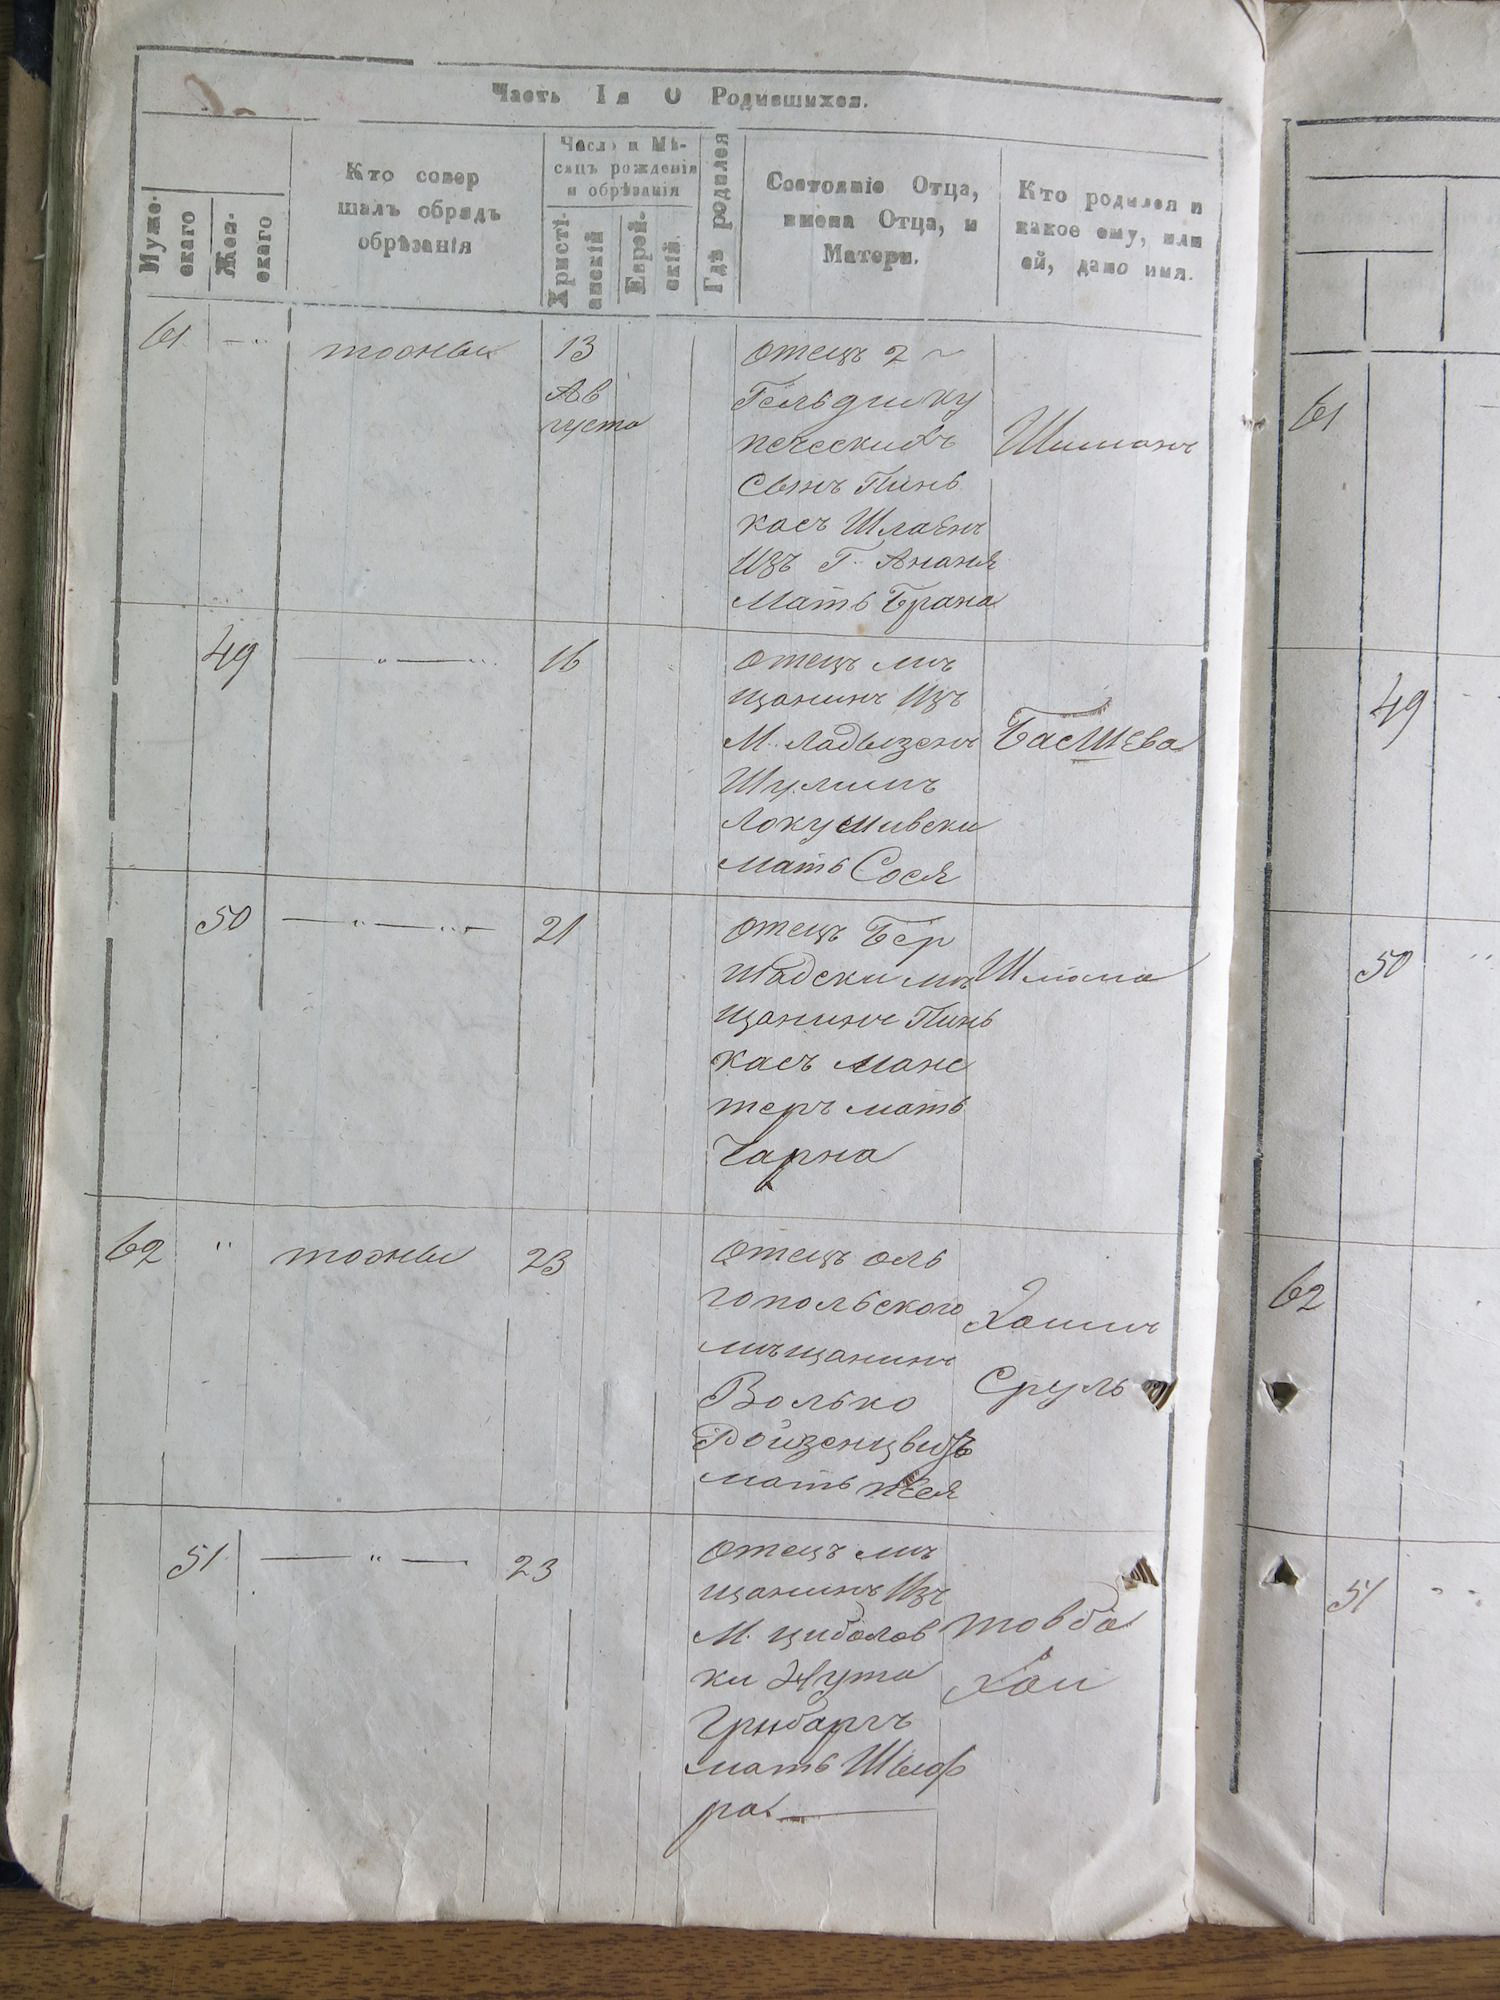 Часть Iя О Родившихся.
Мужескаго
Женскаго
Кто совер
шалъ обрядъ
обрѣзанія
Числo и Мѣ-
сяцъ рожденія
и обрѣзанія
Христі-
анскій
Еврей-
скій.
Гдѣ родился
Состояніе Отца,
имена Отца, и
Матери.
Кто родился и
какое ему, или
ей, дано имя.
61 тожны 13
Ав
густа
отецъ 2
Гельдии ку
печескихъ
Сынъ Пинь
касъ
Изъ Г. Ананя
Мать Брана
Шиманъ
49 16
отецъ мѣ
щанинъ Изъ
М. Ладызенъ
Шулимъ
мать Сося
БасШева
50 21
отецъ Бер
шадски мѣ
щанинъ Пинь
касъ Манс
теръ мать
Чарна
Шлима
62 " тожны 23
отецъ оль
гопольского
мѣщанинъ
Волько
Ройзенцвигъ
мать песя
Хаимъ
Сруль
51 23
отецъ мѣ
щанинъ Изъ
М. циболов
ки Нута
Гринбаргъ
мать Шыф
ра
товба
Хаи
61
49
50
62
51